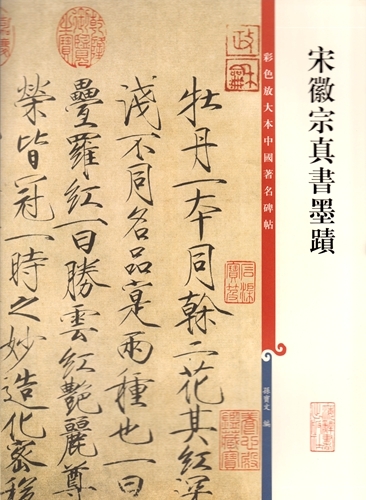 宋徽宗真書墨蹟
彩色放大本中國著名碑帖
孫寶文 編
牡丹一本同榦二花其紅深
淺不同名品寔兩種也一曰
疊羅紅一曰勝雲紅艷麗尊
榮皆冠一時之妙造化密移
政龢
乾隆御覽之寶